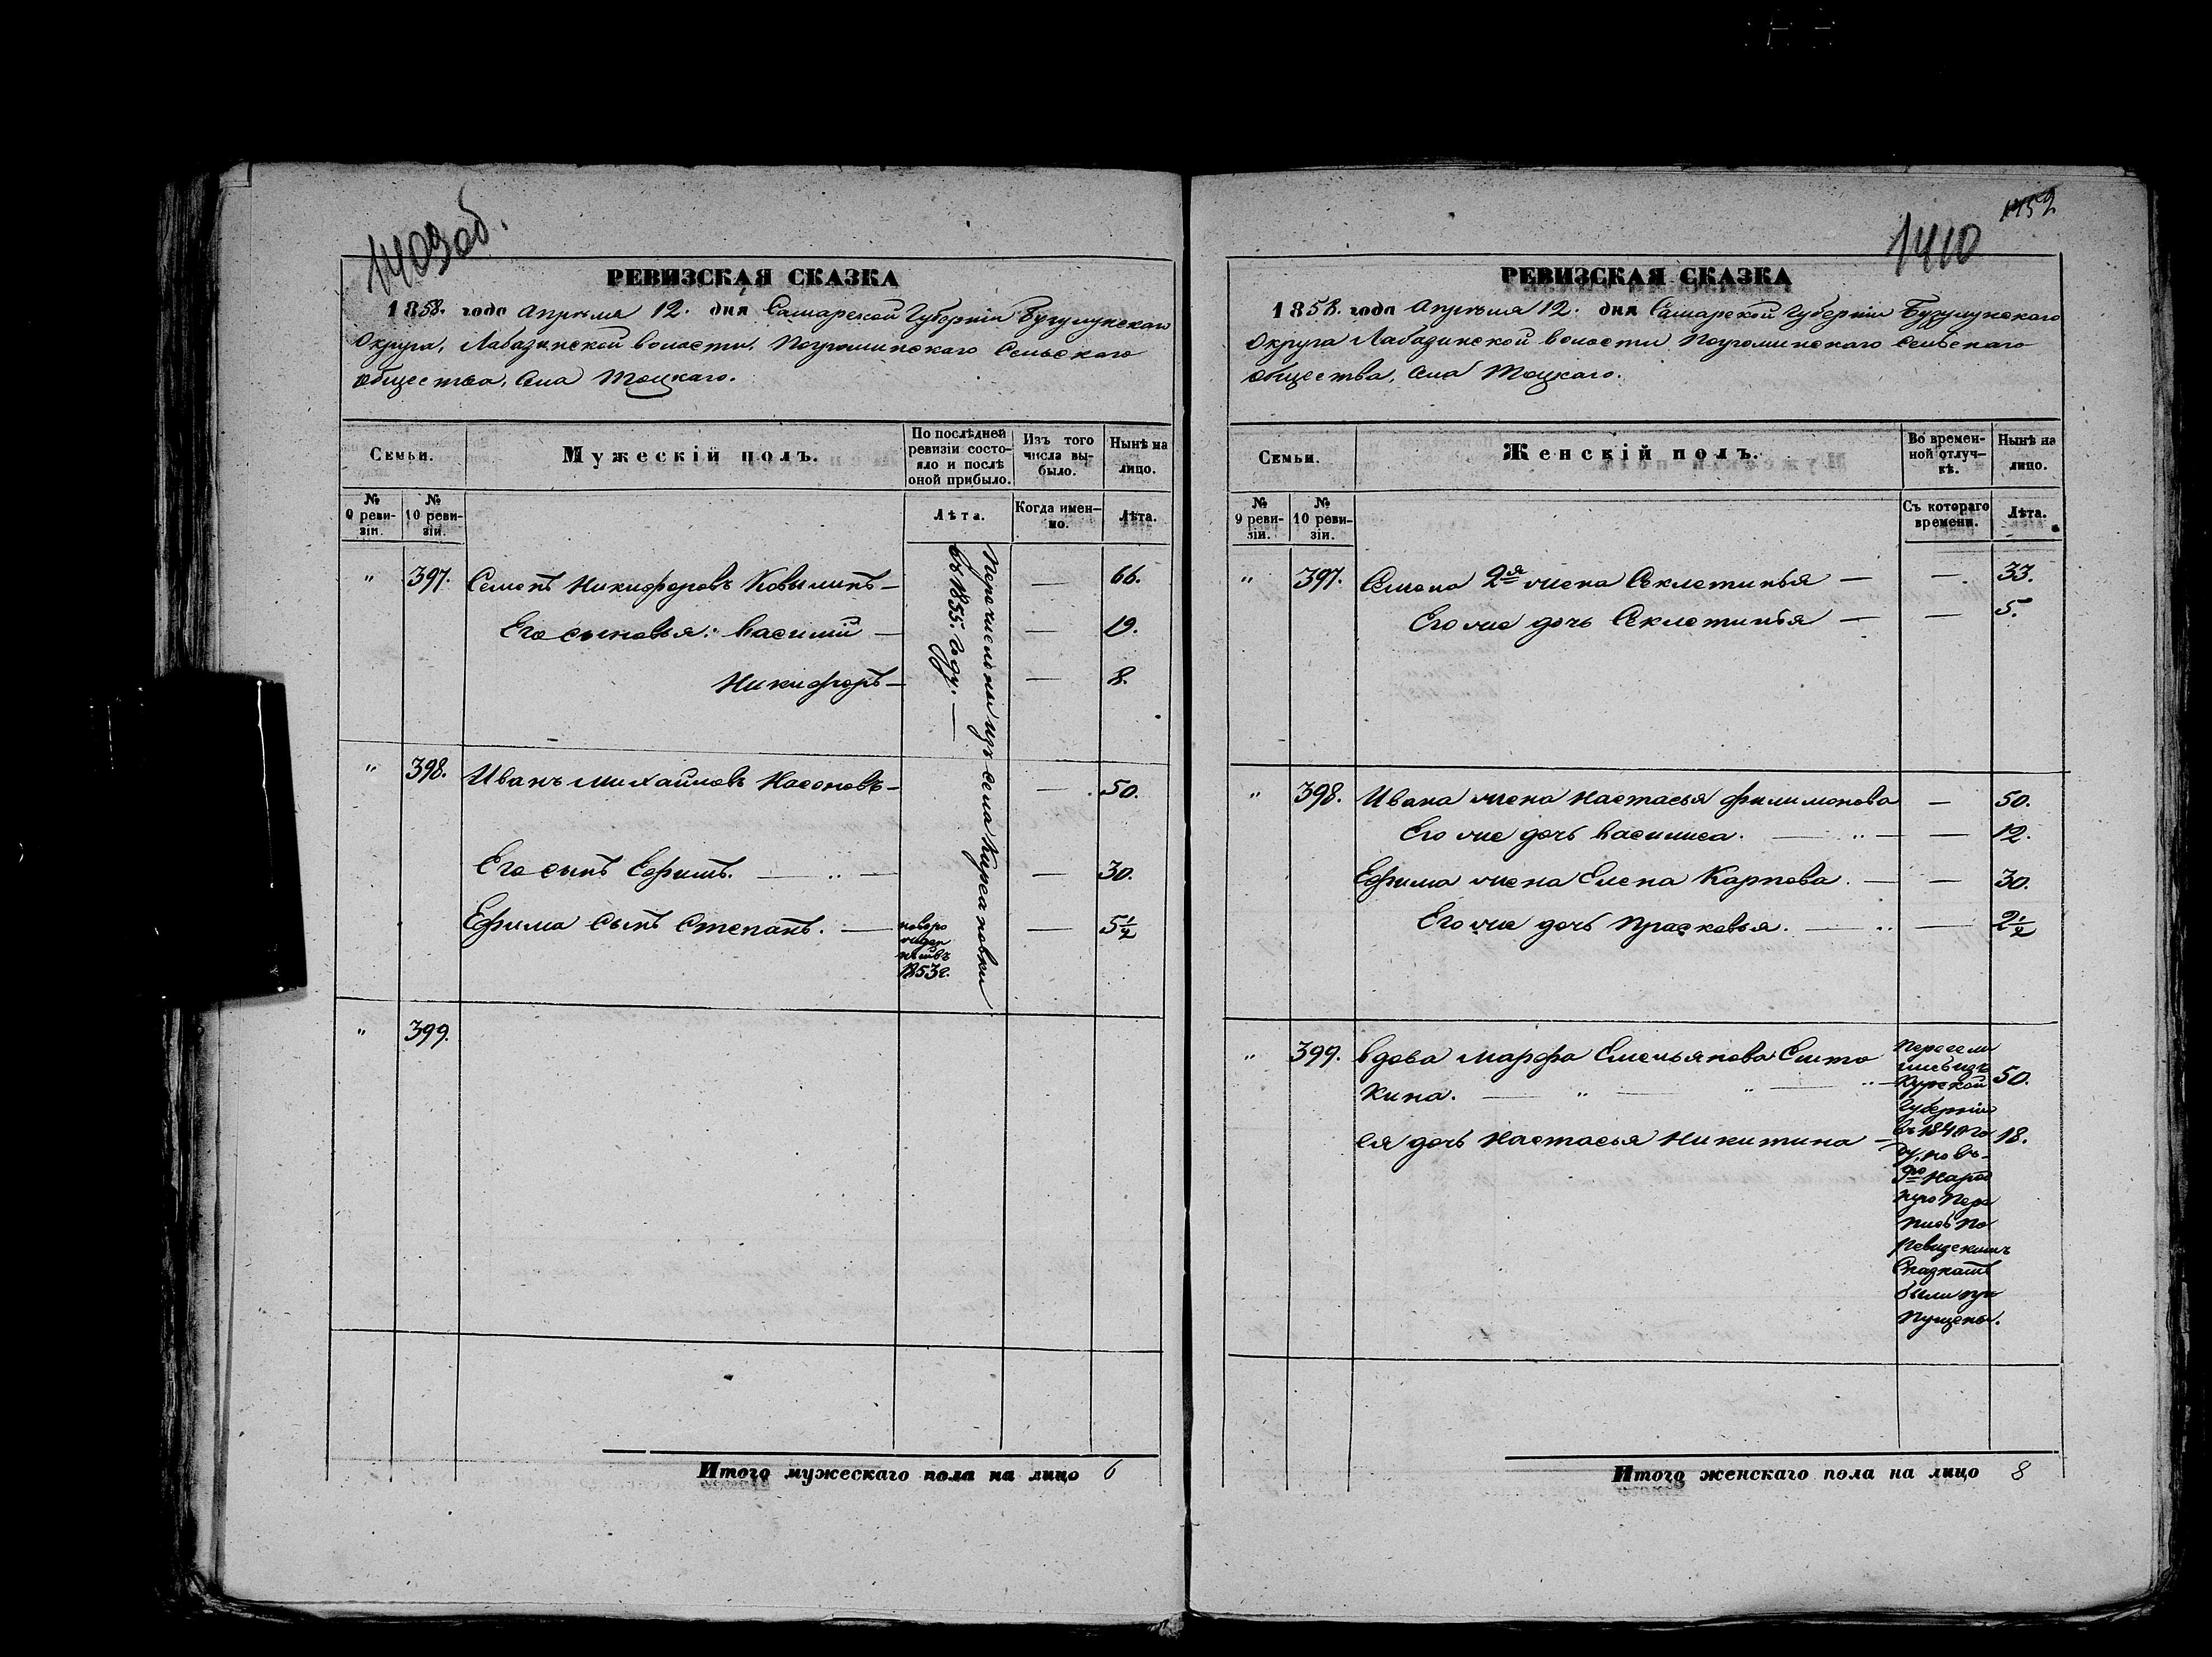 1403об.
РЕВИЗСКАЯ СКАЗКА
1858. года Апрѣля 12. дня Самарской Губерніи Бузулукскаго
Округа, Лабазинской волости, Погроминскаго Сельскаго
общества, Села Тоцкаго.
Семьи.
Мужескій полъ.
По послѣдней ревизіи состояло и послѣ оной прибыло.
Изъ того числа выбыло.
Нынѣ на лицо.
№ 9 ревизіи.
№ 10 ревизіи.
Лѣта.
Когда именно.
Лѣта.
" 397. Семенъ Никифоровъ Ковылинъ — — 66.
Его сыновья: Василий — — 19.
Никифоръ — — 8.
Перечислены изъ села Кирсановки
въ 1855 году. —
" 398. Иванъ Михайловъ Насоновъ — — 50.
Его сынъ Ефимъ. — — 30.
Ефима сынъ Степанъ. — — 5½
новоро
жден
ный въ
1853 г.
" 399.
Итого мужескаго пола на лицо 6
1452
1410
РЕВИЗСКАЯ СКАЗКА
1858. года Апрѣля 12. дня Самарской Губерніи Бузулукскаго
Округа Лабазинской волости Погроминскаго сельскаго
общества, Села Тоцкаго.
Семьи.
Женскій полъ.
Во временной отлучкѣ.
Нынѣ на лицо.
№ 9 ревизіи.
№ 10 ревизіи.
Съ котораго времени.
Лѣта.
" 397. Семена 2я жена Секлетинья — — 33.
Его же дочь Секлетинья — — 5.
" 398. Ивана жена Настасья Филимонова — 50.
Его же дочь Василиса. — — 12.
Ефима жена Елена Карпова. — — 30.
Его же дочь Прасковья. — — 2½
" 399. Вдова Марфа Емельянова
кина. — " — " — 50.
ея дочь Настасья Никитина — 18.
Пересели
лись изъ
Курской
Губерніи
въ 1840 го
ду, но въ
9ю Народ
ную Пере
пись по
Ревизскимъ
Сказкамъ
были про
пущены.
Итого женскаго пола на лицо 8